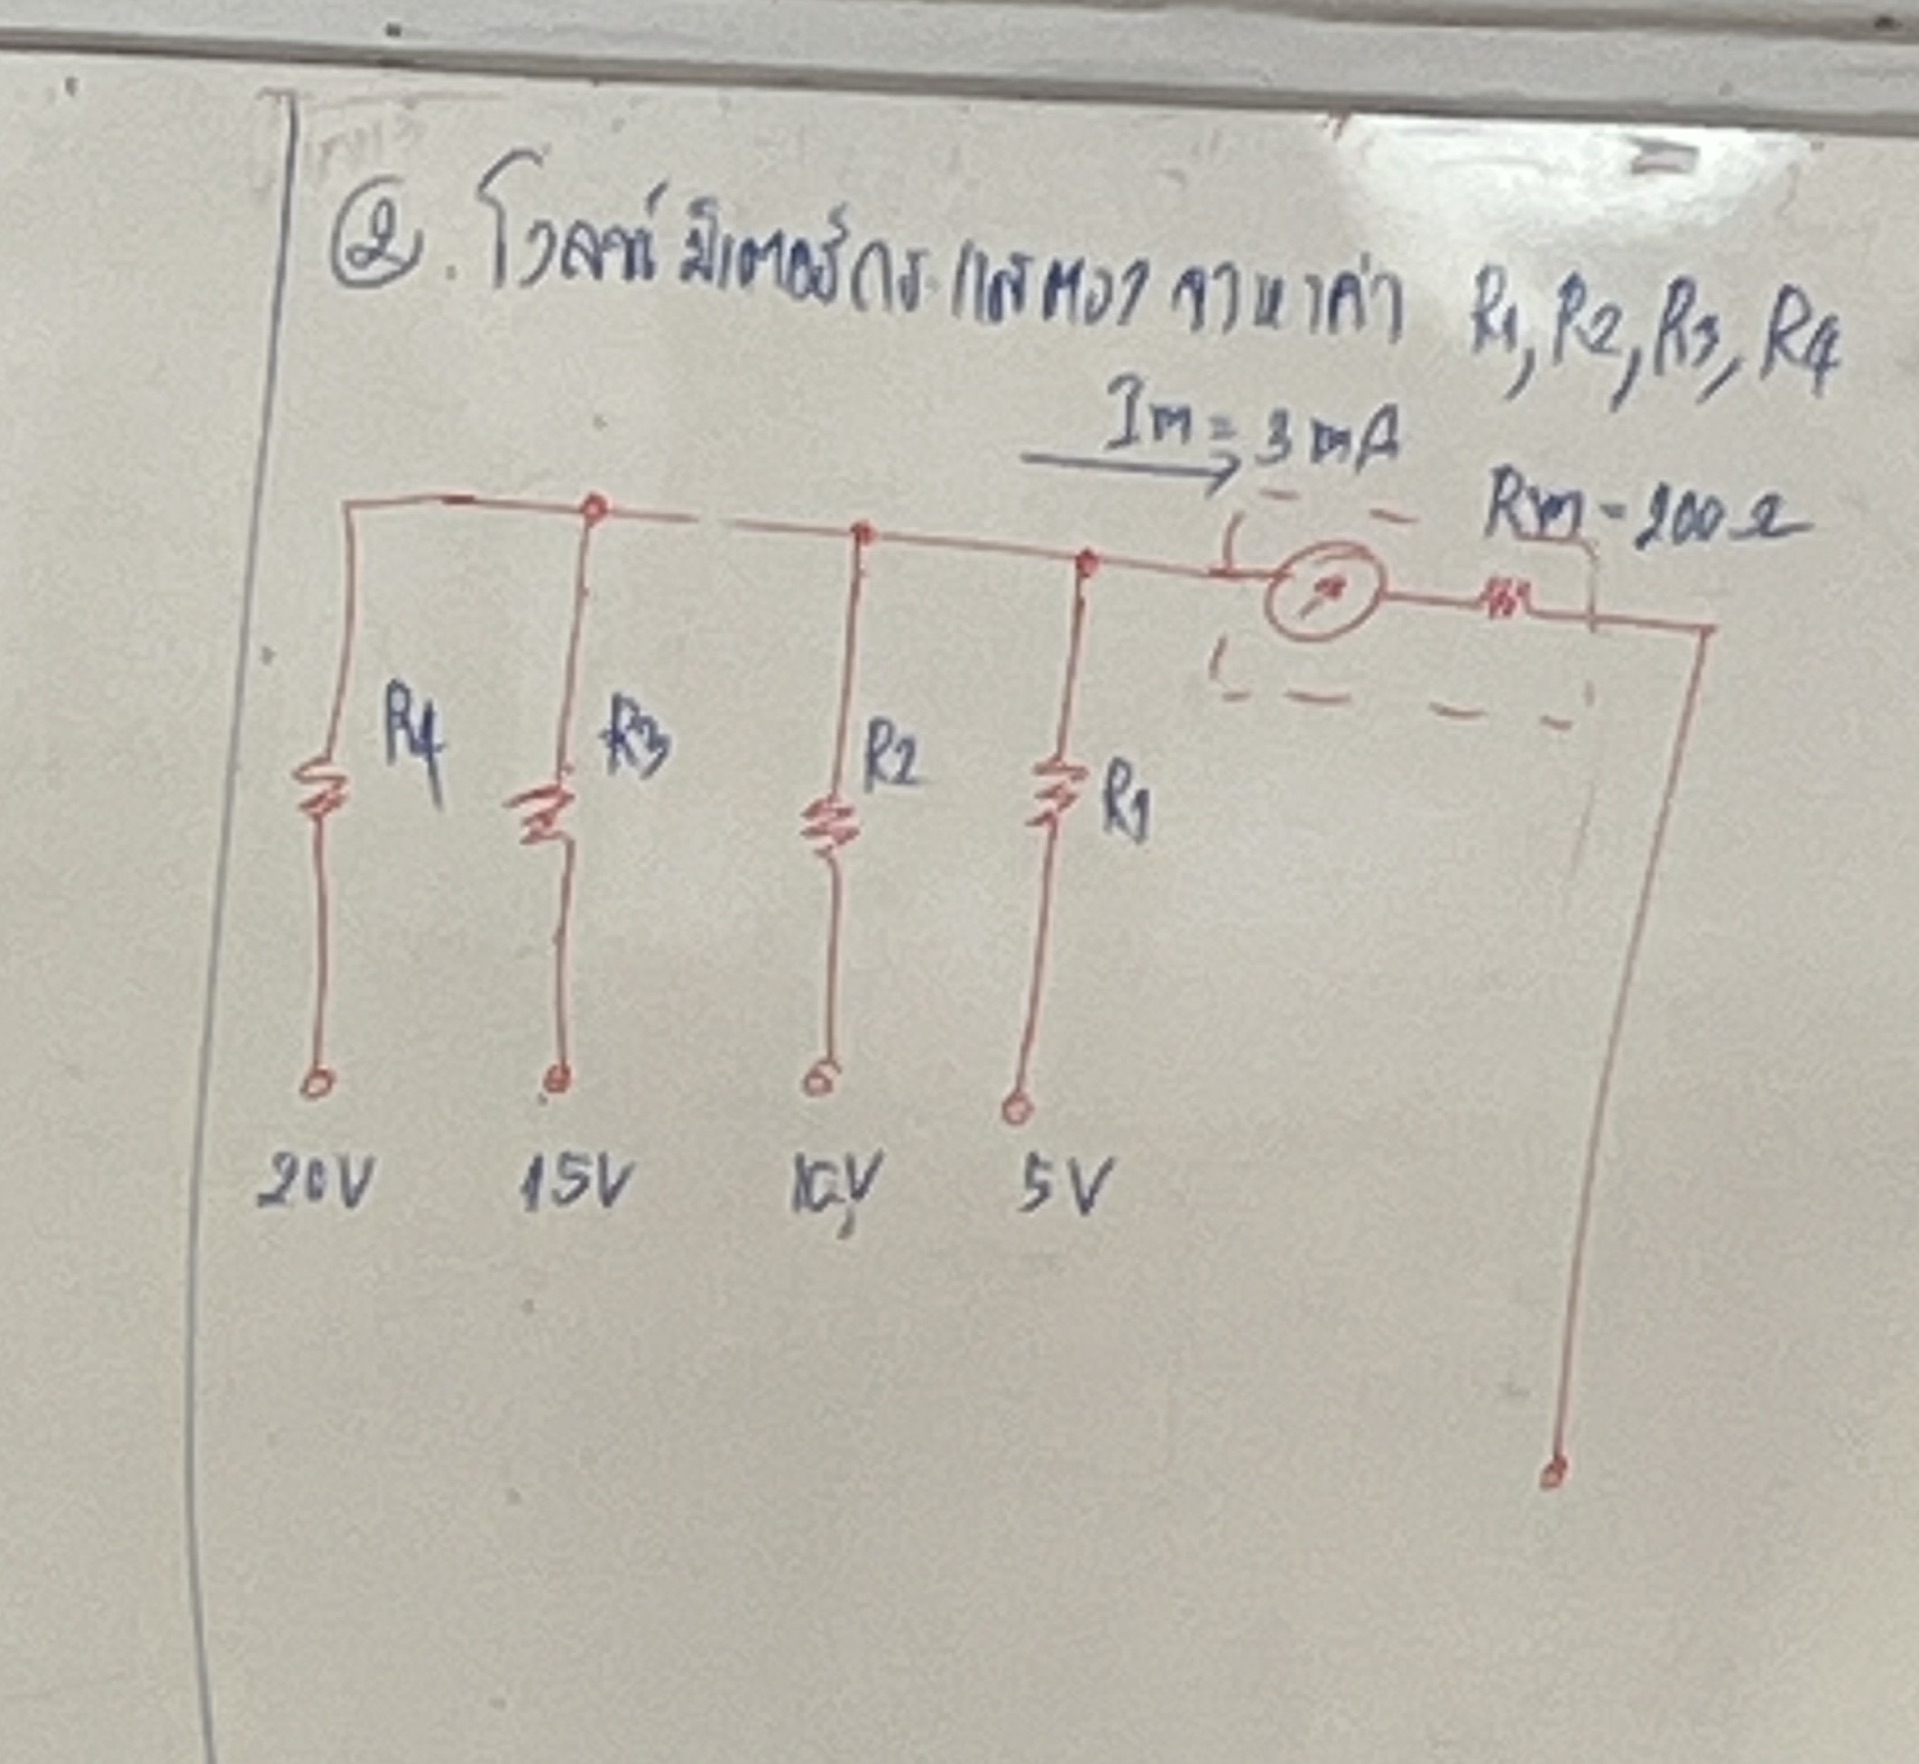 ②. โวลท์มิเตอร์กระแสตรง จงหาค่า R1, R2, R3, R4
Im = 3 mA
Rm = 200 Ω
R4 R3 R2 R1
20V 15V 10V 5V